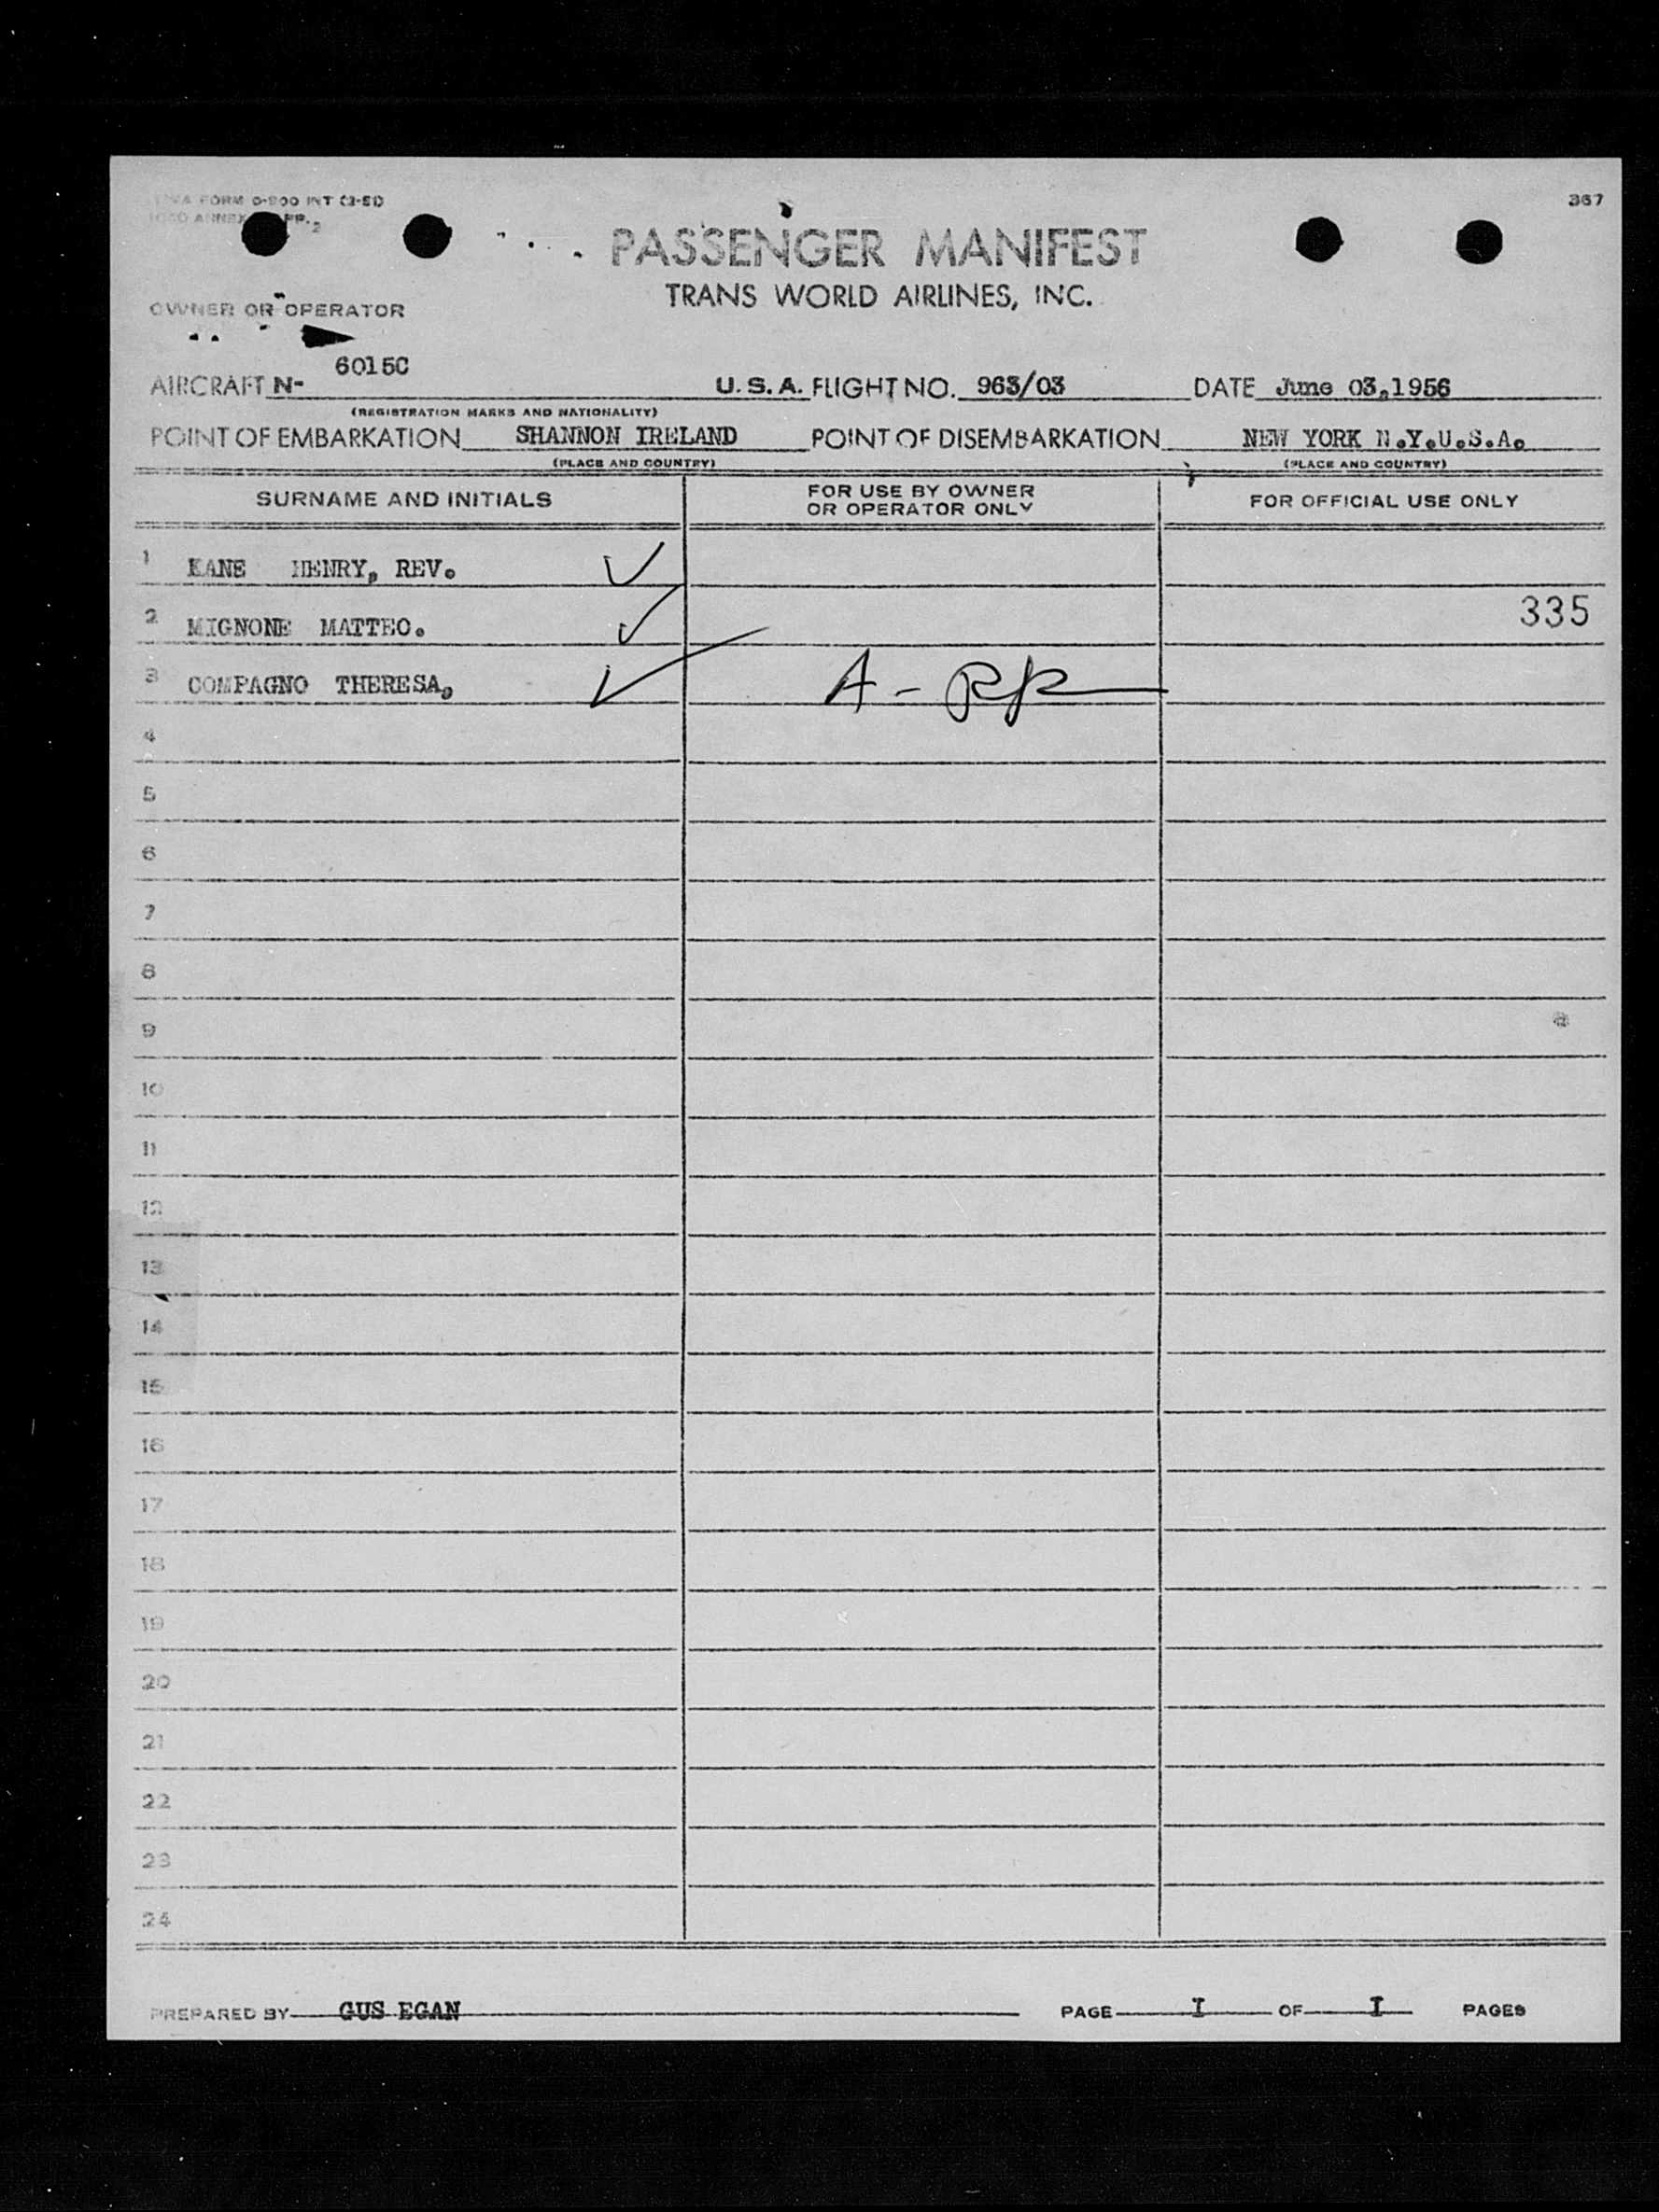 TWA FORM O-800 INT (3-51)
367
ICAO ANNEX
PASSENGER MANIFEST
TRANS WORLD AIRLINES, INC.
OWNER OR OPERATOR
AIRCRAFT N- 6015C U.S.A. FLIGHT NO. 963/03 DATE June 03,1956
(REGISTRATION MARKS AND NATIONALITY)
POINT OF EMBARKATION SHANNON IRELAND POINT OF DISEMBARKATION NEW YORK N.Y.U.S.A.
(PLACE AND COUNTRY) (PLACE AND COUNTRY)
SURNAME AND INITIALS FOR USE BY OWNER OR OPERATOR ONLY FOR OFFICIAL USE ONLY
1 KANE HENRY, REV.
2 MIGNONE MATTEO. 335
3 COMPAGNO THERESA, A -
4
5
6
7
8
9
10
11
12
13
14
15
16
17
18
19
20
21
22
23
24
PREPARED BY GUS EGAN PAGE I OF I PAGES